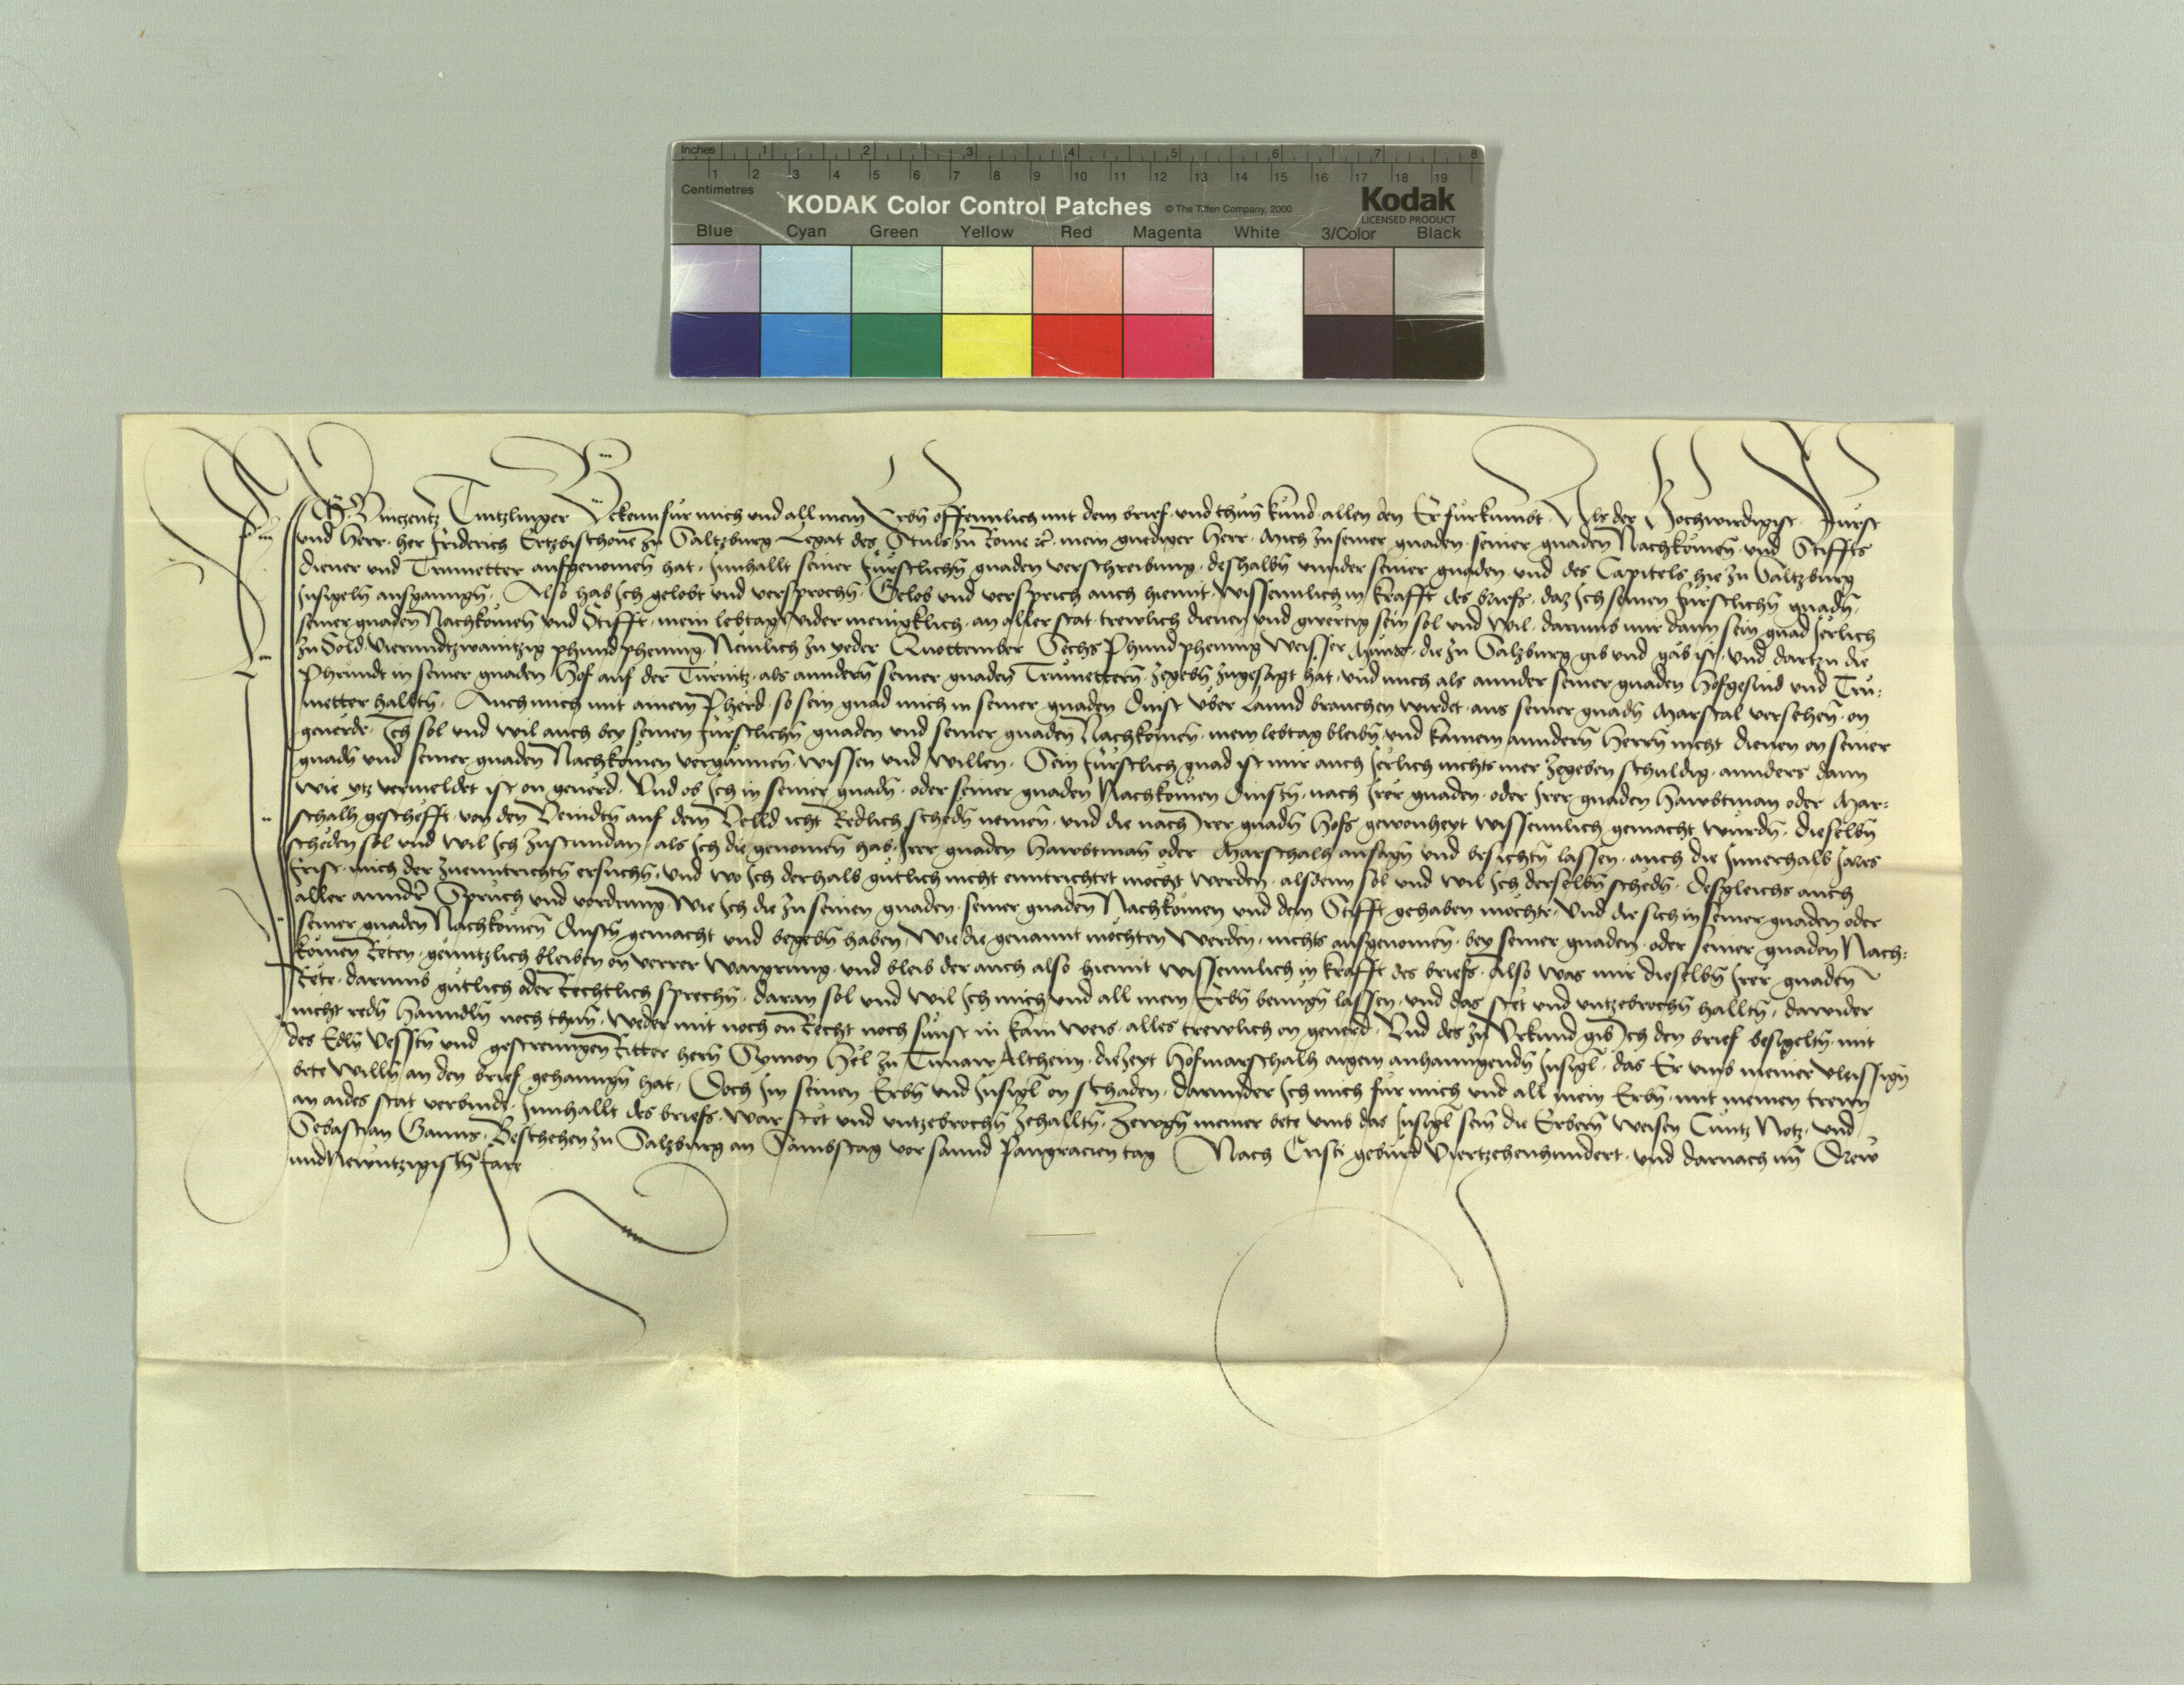 Inches 1 2 3 4 5 6 7 8
1 2 3 4 5 6 7 8 9 10 11 12 13 14 15 16 17 18 19
Centimetres
KODAK Color Control Patches © The Tiffen Company, 2000 Kodak
LICENSED PRODUCT
Blue Cyan Green Yellow Red Magenta White 3/Color Black
Ich Vintzentz Tintzlinger Bekenn für mich und all mein Erbñ offennlich mit dem brief und thun kund allen den Er fürkumbt. Als der Hochwirdigist Fürst
und Herr. her Friderich Ertzbischoue zu Saltzburg Legat des Stuls zu Rome ꝛc̃. mein gnediger Herr. Mich zu seiner gnaden. seiner gnaden Nachkomen̄. und Stiffts
diener und Trumetter aufgenomen̄ hat. Innhallt seiner fürstlichñ gnaden verschreibung. deshalbñ vnnder seiner gnaden und des Capitels hie zu Saltzburg
Insigelñ ausganngñ. Also hab Ich gelobt und versprochñ. Gelob und versprich auch hiemit. wissennlich in krafft des briefs. daz Ich seinen fürstlichñ gnadñ.
seiner gnaden Nachkomen̄ und Stifft. mein lebtag wider menigklich. an aller stat. trewlich dienen und gwertig sein sol und wil. darumb mir dann sein gnad Jerlich
zu Sold. vierundtzwaintzig phund phening. Nemlich zu yeder Quottember Sechs phund phening weisser Münss. die zu Salzburg gib und gäb ist. und dartzu die
Phründt in seiner gnaden Hof auf der Türnitz. als anndern̄ seiner gnaden Trumettern̄. zegebñ zugesagt hat. und mich als annder seiner gnaden Hofgesind und Tru-
metter halltñ. Auch mich mit ainem Pherd. so sein gnad mich in seiner gnaden dinst vber lannd brauchen wirdet. aus seiner gnadñ Marstal versehen̄. on
geuerde. Ich sol und wil auch bey seinen fürstlichñ gnaden und seiner gnaden Nachkomen̄. mein lebtag bleibñ. und kainem anndern̄ Herrñ nicht dienen on seiner
gnadñ und seiner gnaden Nachkomen vergünnen. wissen und willen. Sein fürstlich gnad ist mir auch Jerlich nichts mer zegeben schuldig. annders dann
wie ytz vermeldet ist on geuerd. Vnd ob Ich in seiner gnadñ. oder seiner gnaden Nachkomen dinstñ. nach Irer gnaden. oder Irer gnaden Hawbtman oder Mar-
schalh geschefft. von den Veindtñ auf dem Velld icht Redlich schedñ nemen̄. und die nach Irer gnadñ Hofs gewonheyt wissennlich gemacht würdñ. dieselbñ
scheden sol und wil Ich zustundan. als Ich die genomen̄ hab. Irer gnaden Hawbtman̄ oder Marschalh ansagñ und besichtñ lassen. auch die Innerhalb Jars
frist. mich der zuenntrichtñ ersuchñ. und wo Ich derhalb gütlich nicht enntrichtet mocht werden. alsdenn sol und wil Ich derselbñ schedñ. desgleichs auch
aller annder Spruch und vordrung. wie Ich die zu seinen gnaden. seiner gnaden Nachkomen und dem Stifft gehaben möchte. Und die sich in seiner gnaden oder
seiner gnaden Nachkomen̄ dinstñ gemacht und begebñ haben. wie die genannt möchten werden. nichts ausgenomen̄. bey seiner gnaden. oder seiner gnaden Nach-
komen̄ Reten. genntzlich bleiben on verrer waygrung. und bleib der auch also hiemit wissennlich in krafft des briefs. Also was mir dieselbñ Irer gnaden̄
Rete. darumb gütlich oder Rechtlich sprechñ. daran sol und wil Ich mich und all mein Erbñ benügñ lassen. und das stet und vntzebrochñ halltñ. dawider
nicht redñ hanndlñ noch thun̄. weder mit noch on Recht noch sunst in kain weis. alles trewlich on geuerd. Vnd des zu Vrkund gib Ich den brief besigeltñ. mit
des Edlñ Vesstñ und gestrenngen Ritter hern̄ Symon Hel zu Altheim. dieseyt Hofmarschalh aigem anhanngendñ Insigl. das Er vmb meiner vleissign̄
bete willñ an den brief gehanngñ hat. Doch Im seinen Erbñ und Insigl on schaden. darunder Ich mich für mich und all mein Erbñ. mit meinen trewn
an aides stat verbinde. Innhallt des briefs. war stet und vntzebrochñ zehalltñ. Zewgñ meiner bete vmb das Insigl sein̄ die Erbern̄ weisen Cuntz Notz. und
Sebastian Ganns. Beschehen zu Salzburg an Sambstag vor sannd Pangracien tag Nach Cristi geburd Viertzehenhundert. und darnach im̄ Drew
undNewntzigistñ Jare